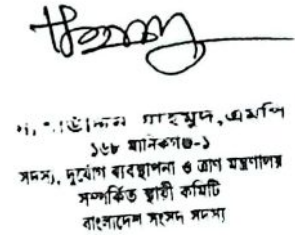 মাহমুদ, এমপি
১৬৮ মানিকগঞ্জ-১
সদস্য, দুর্যোগ ব্যবস্থাপনা ও ত্রাণ মন্ত্রণালয়
সম্পর্কিত স্থায়ী কমিটি
বাংলাদেশ সংসদ সদস্য